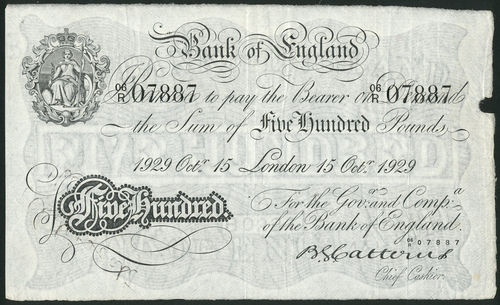 Bank of England
06/R 07887 06/R 07887
to pay the Bearer on Demand
the Sum of Five Hundred Pounds
1929 Octr. 15 London 15 Octr. 1929
For the Govr. and Compa.
Five Hundred
of the Bank of England.
06/R 07887
B G Catterns
Chief Cashier.